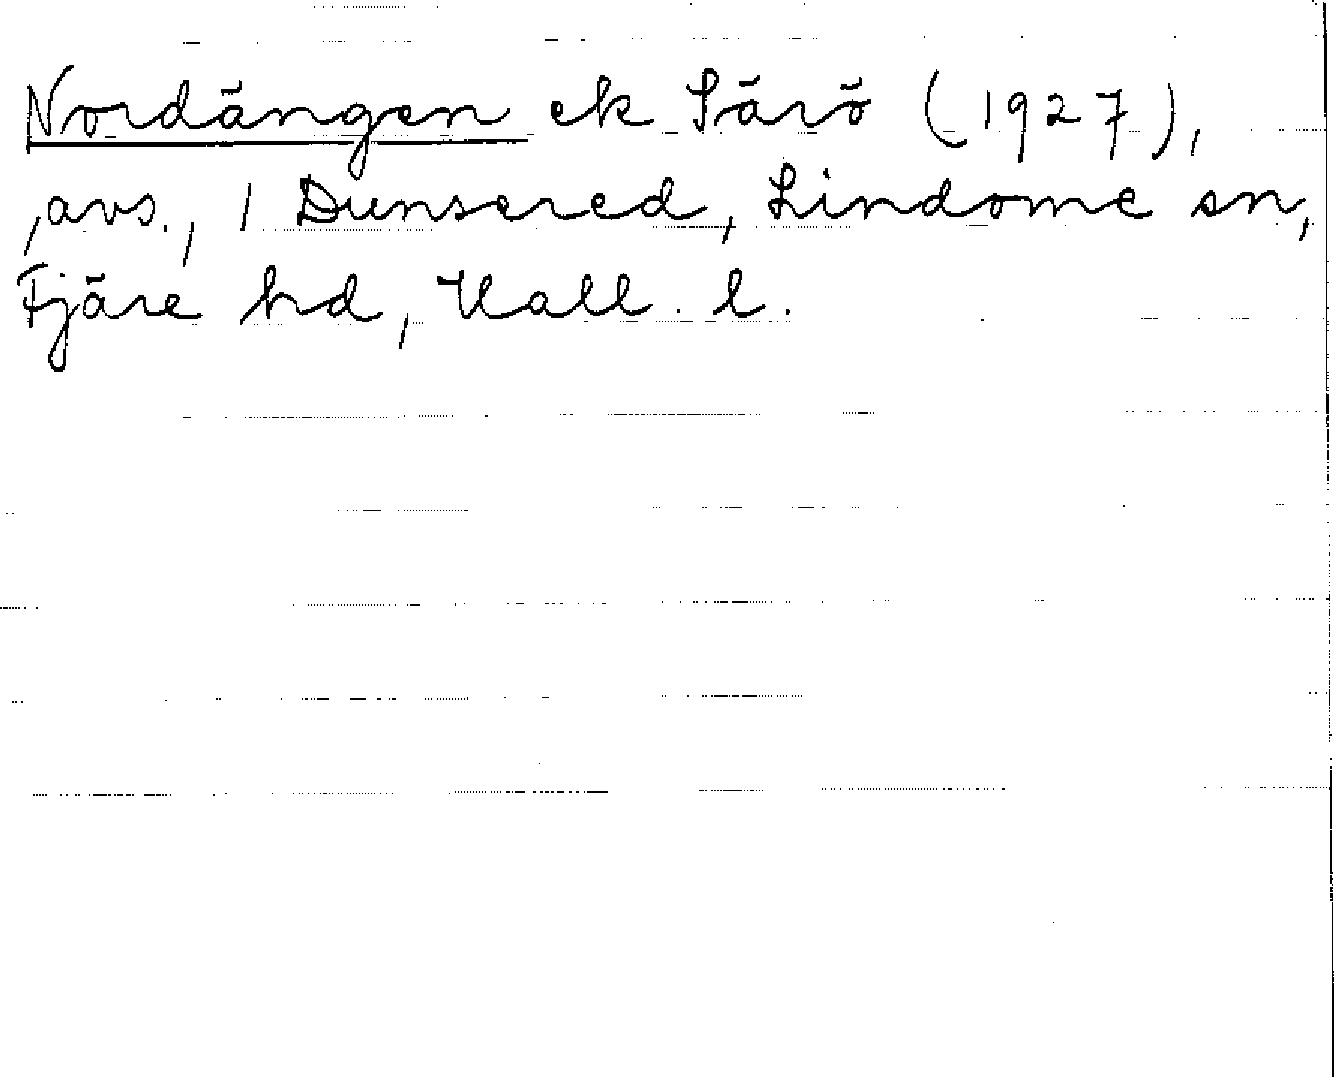 Nordängen ek Särö (1927),
, avs., 1 Dunsered, Lindome sn,
Fjäre hd, Hall. l.